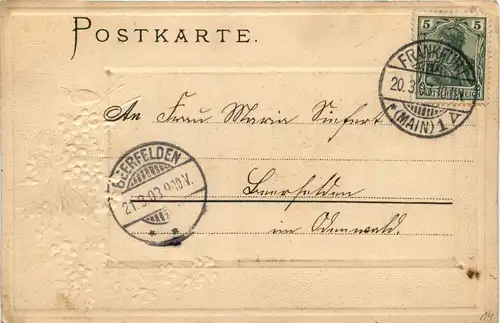 POSTKARTE.
5
DEUTSCHES REICH
FRANKFURT
20.3.
* (MAIN) 1
An Frau Maria Siefert
BEERFELDEN
21.3.03.9-10V.
* *
Beerfelden
im Odenwald.
14